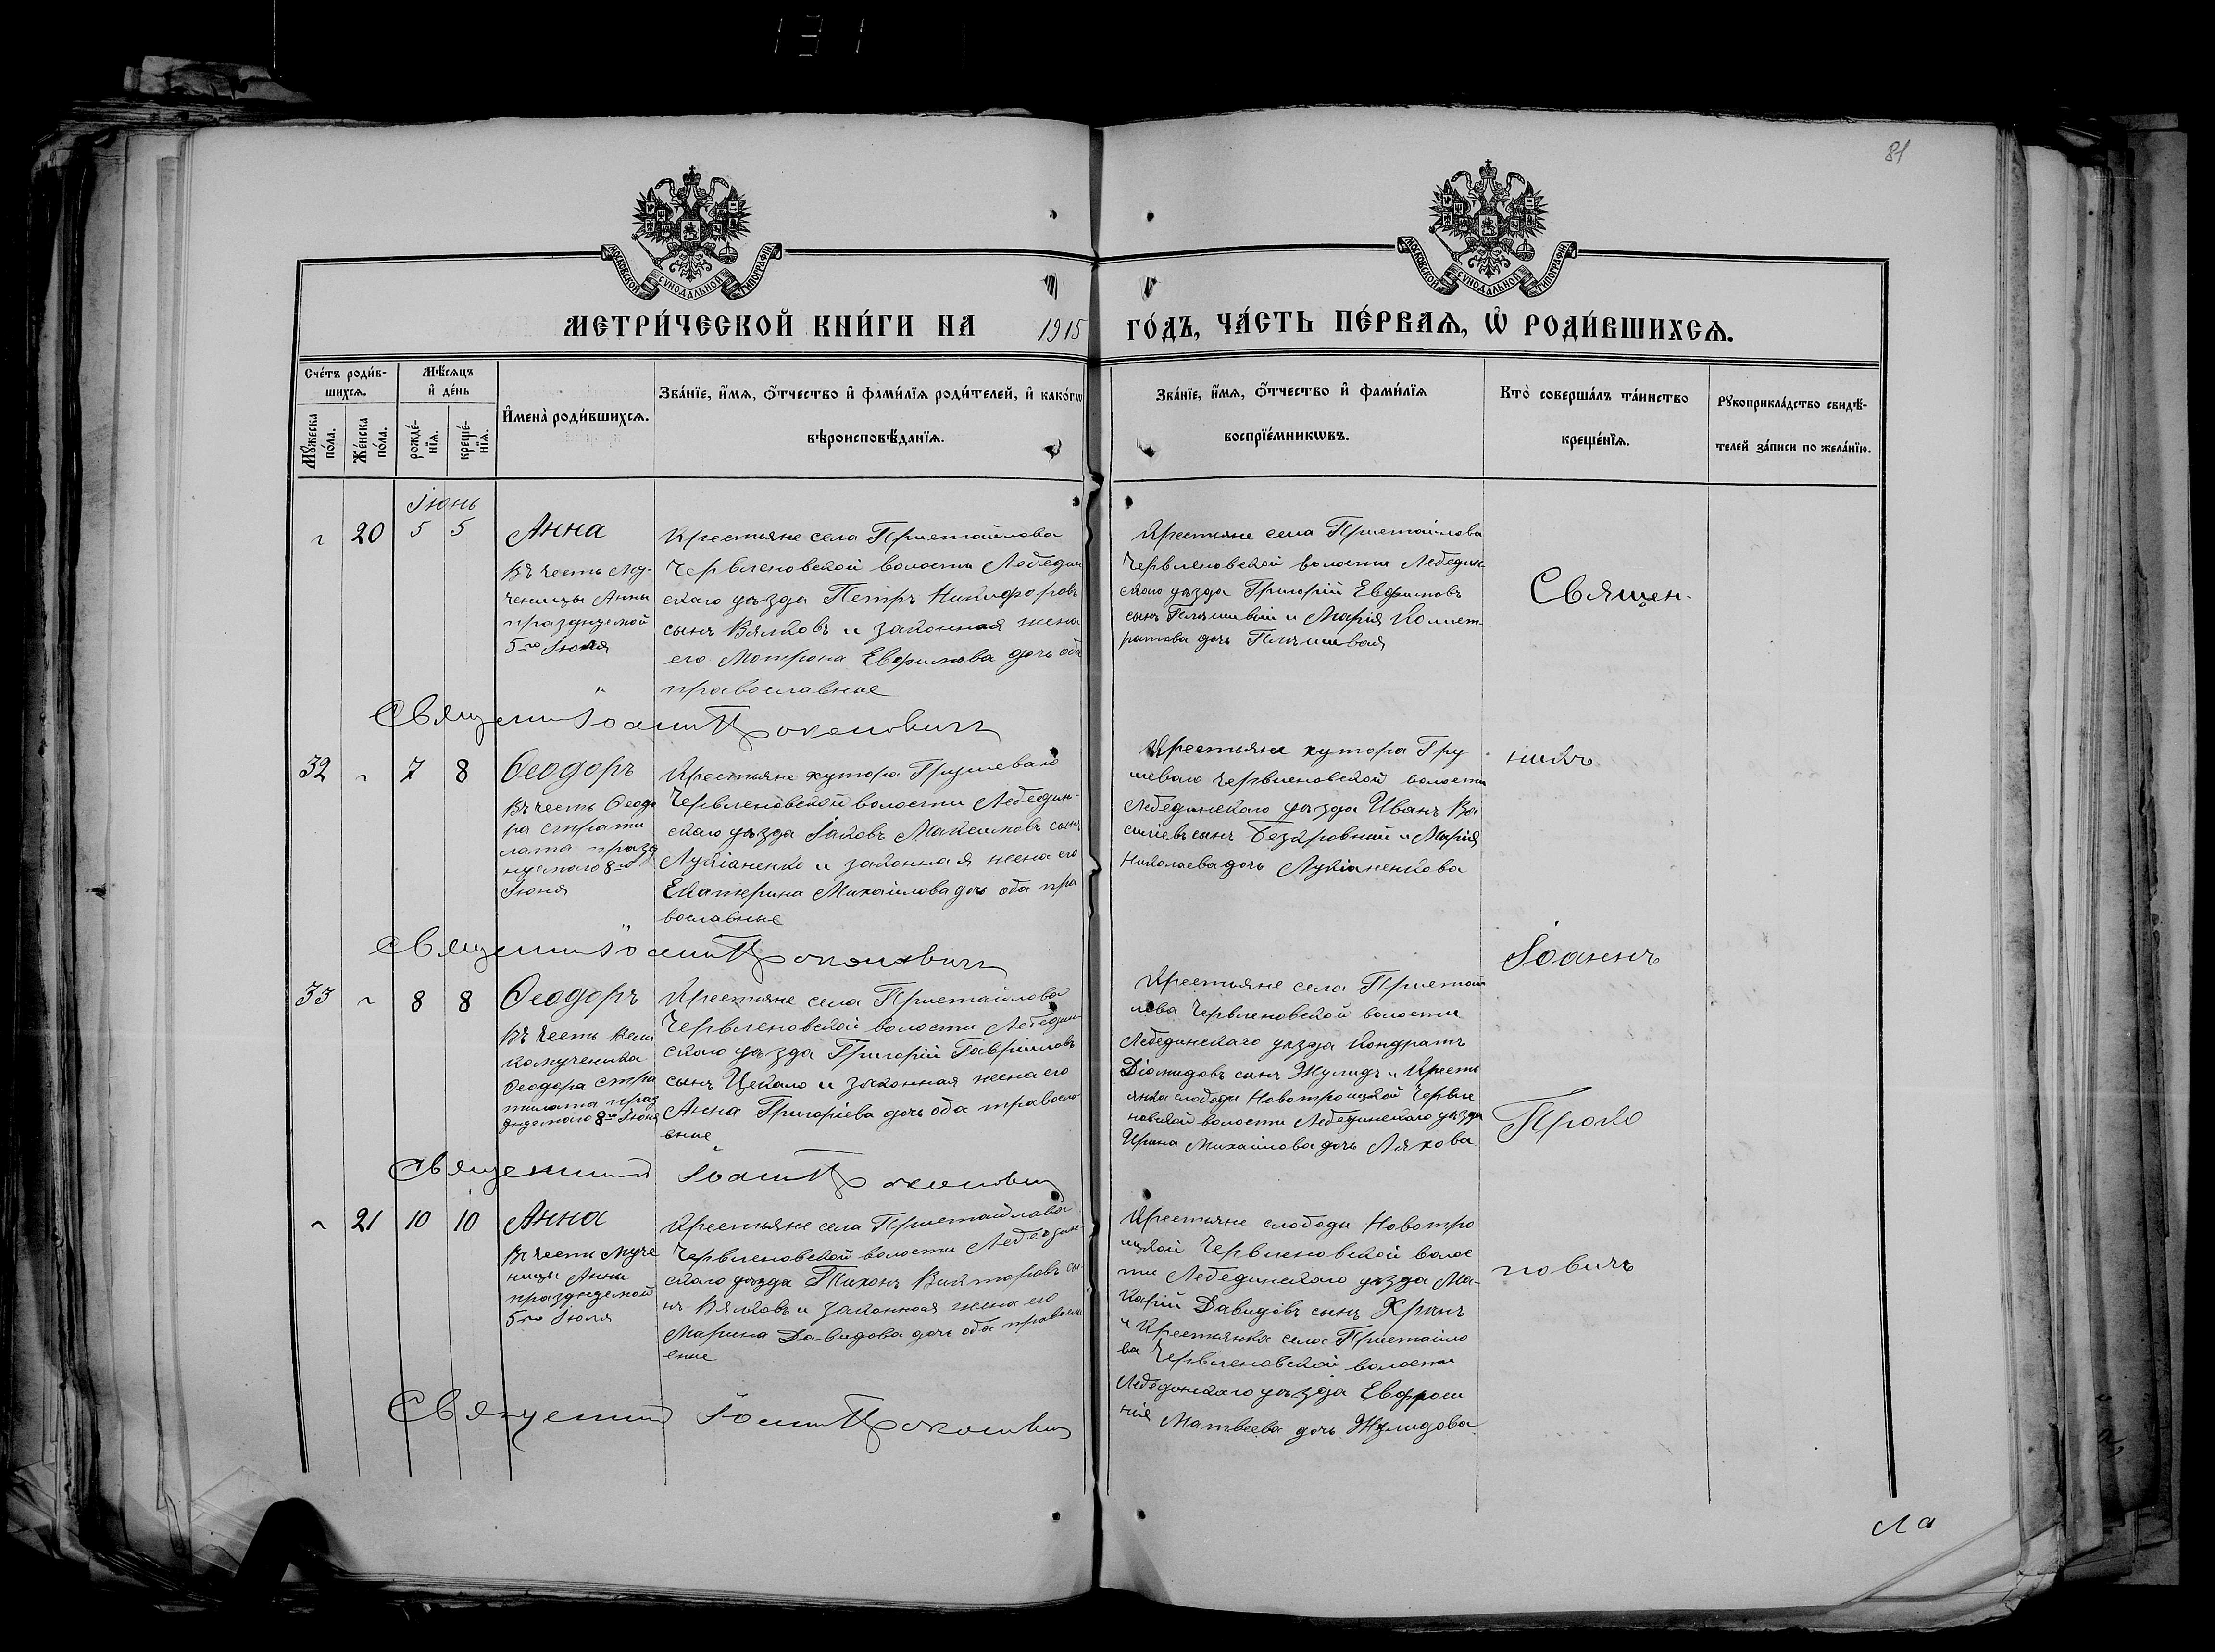 131
81
МОСКОВСКОЙ СѴНОДАЛЬНОЙ ТИПОГРАФІИ
МОСКОВСКОЙ СѴНОДАЛЬНОЙ ТИПОГРАФІИ
МЕТРИ́ЧЕСКОЙ КНИ́ГИ НА 1915 ГО́ДЪ, ЧА́СТЬ ПЕ́РВАѦ, Ѡ҆ РОДИ́ВШИХСѦ.
Сче́тъ роди́в-
шихсѧ.
Мꙋ́жеска по́ла.
Же́нска по́ла.
Мѣ́сѧцъ
и҆ де́нь
рожде́-
нїѧ.
креще́-
нїѧ.
И҆мена̀ роди́вшихсѧ.
Зва́нїе, и҆́мѧ, ѻ҆́тчество и҆ фами́лїѧ роди́телей, и҆ како́гѡ
вѣроисповѣ́данїѧ.
Зва́нїе, и҆́мѧ, ѻ҆́тчество и҆ фами́лїѧ
воспрїе́мникѡвъ.
Кто̀ соверша́лъ та́инство
креще́нїѧ.
Рꙋкоприкла́дство свидѣ́-
телей за́писи по жела́нїю.
Іюнь
20 5 5 Анна
Въ честь Му-
ченицы Анны
празднуемой
5го Іюля
Крестьяне села Приетайлова
Червленовской волости Лебедин
скаго уѣзда Петръ Никифоровъ
сынъ Вялковъ и законная жена
его Мотрона Евфимова дочь оба
православные
Крестьяне села Приетайлова
Червленовской волости Лебедин-
скаго уѣзда Григорій Евфимовъ
сынъ и Марія
дочь
Священ-
Священник Іоанн Прокопович
32 7 8 Ѳеодоръ
Въ честь Ѳеодо
ра страти
лата празд
нуемаго 8го
Іюня
Крестьяне хутора Грушеваго
Червленовской волости Лебедин-
скаго уѣзда Іаковъ Максимовъ сынъ
Лукіаненко и законная жена его
Екатерина Михайлова дочь оба пра
вославные
Крестьяне хутора Гру
шеваго Червленовской волости
Лебединскаго уѣзда Иванъ Ва
силіевъ сынъ Безкровный и Марія
Николаева дочь Лукіаненкова
никъ
Священник Іоанн Прокопович
Іоаннъ
33 8 8 Ѳеодоръ
Въ честь Вели
комученика
Ѳеодора стра
тилата праз
днуемаго 8го Іюня
Крестьяне села Приетайлова
Червленовской волости Лебедин
скаго уѣзда Григорій Гавріиловъ
сынъ Цекало и законная жена его
Анна Григоріева дочь оба правосла
вные
Крестьяне села Приетай
лова Червленовской волости
Лебединскаго уѣзда Кондратъ
Діомидовъ сынъ Жулидъ и Кресть
янка слободы Новотроицкой Червле
новской волости Лебединскаго уѣзда
Ирина Михайлова дочь Ляхова
Проко
Священник Іоанн Прокопович
21 10 10 Анна
Въ честь Муче
ницы Анны
празднуемой
5го Іюля
Крестьяне села Приетайлова
Червленовской волости Лебедин-
скаго уѣзда Тихонъ Викторовъ сы-
нъ Вялковъ и законная жена его
Марина Давидова дочь оба правосла
вные
Крестьяне слободы Новотро
ицкой Червленовской волос
ти Лебединскаго уѣзда Ма-
карій Давидовъ сынъ Хрынъ
и Крестьянка села Приетайло
ва Червленовской волости
Лебединскаго уѣзда Евфроси
нія Матвеева дочь Жулидова
повичъ
Священник Іоанн Прокопович
ла